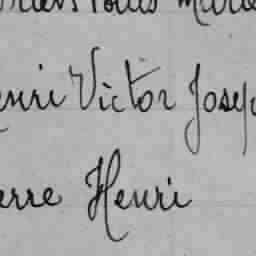 Louis Marie
Henri Victor Joseph
Pierre Henri